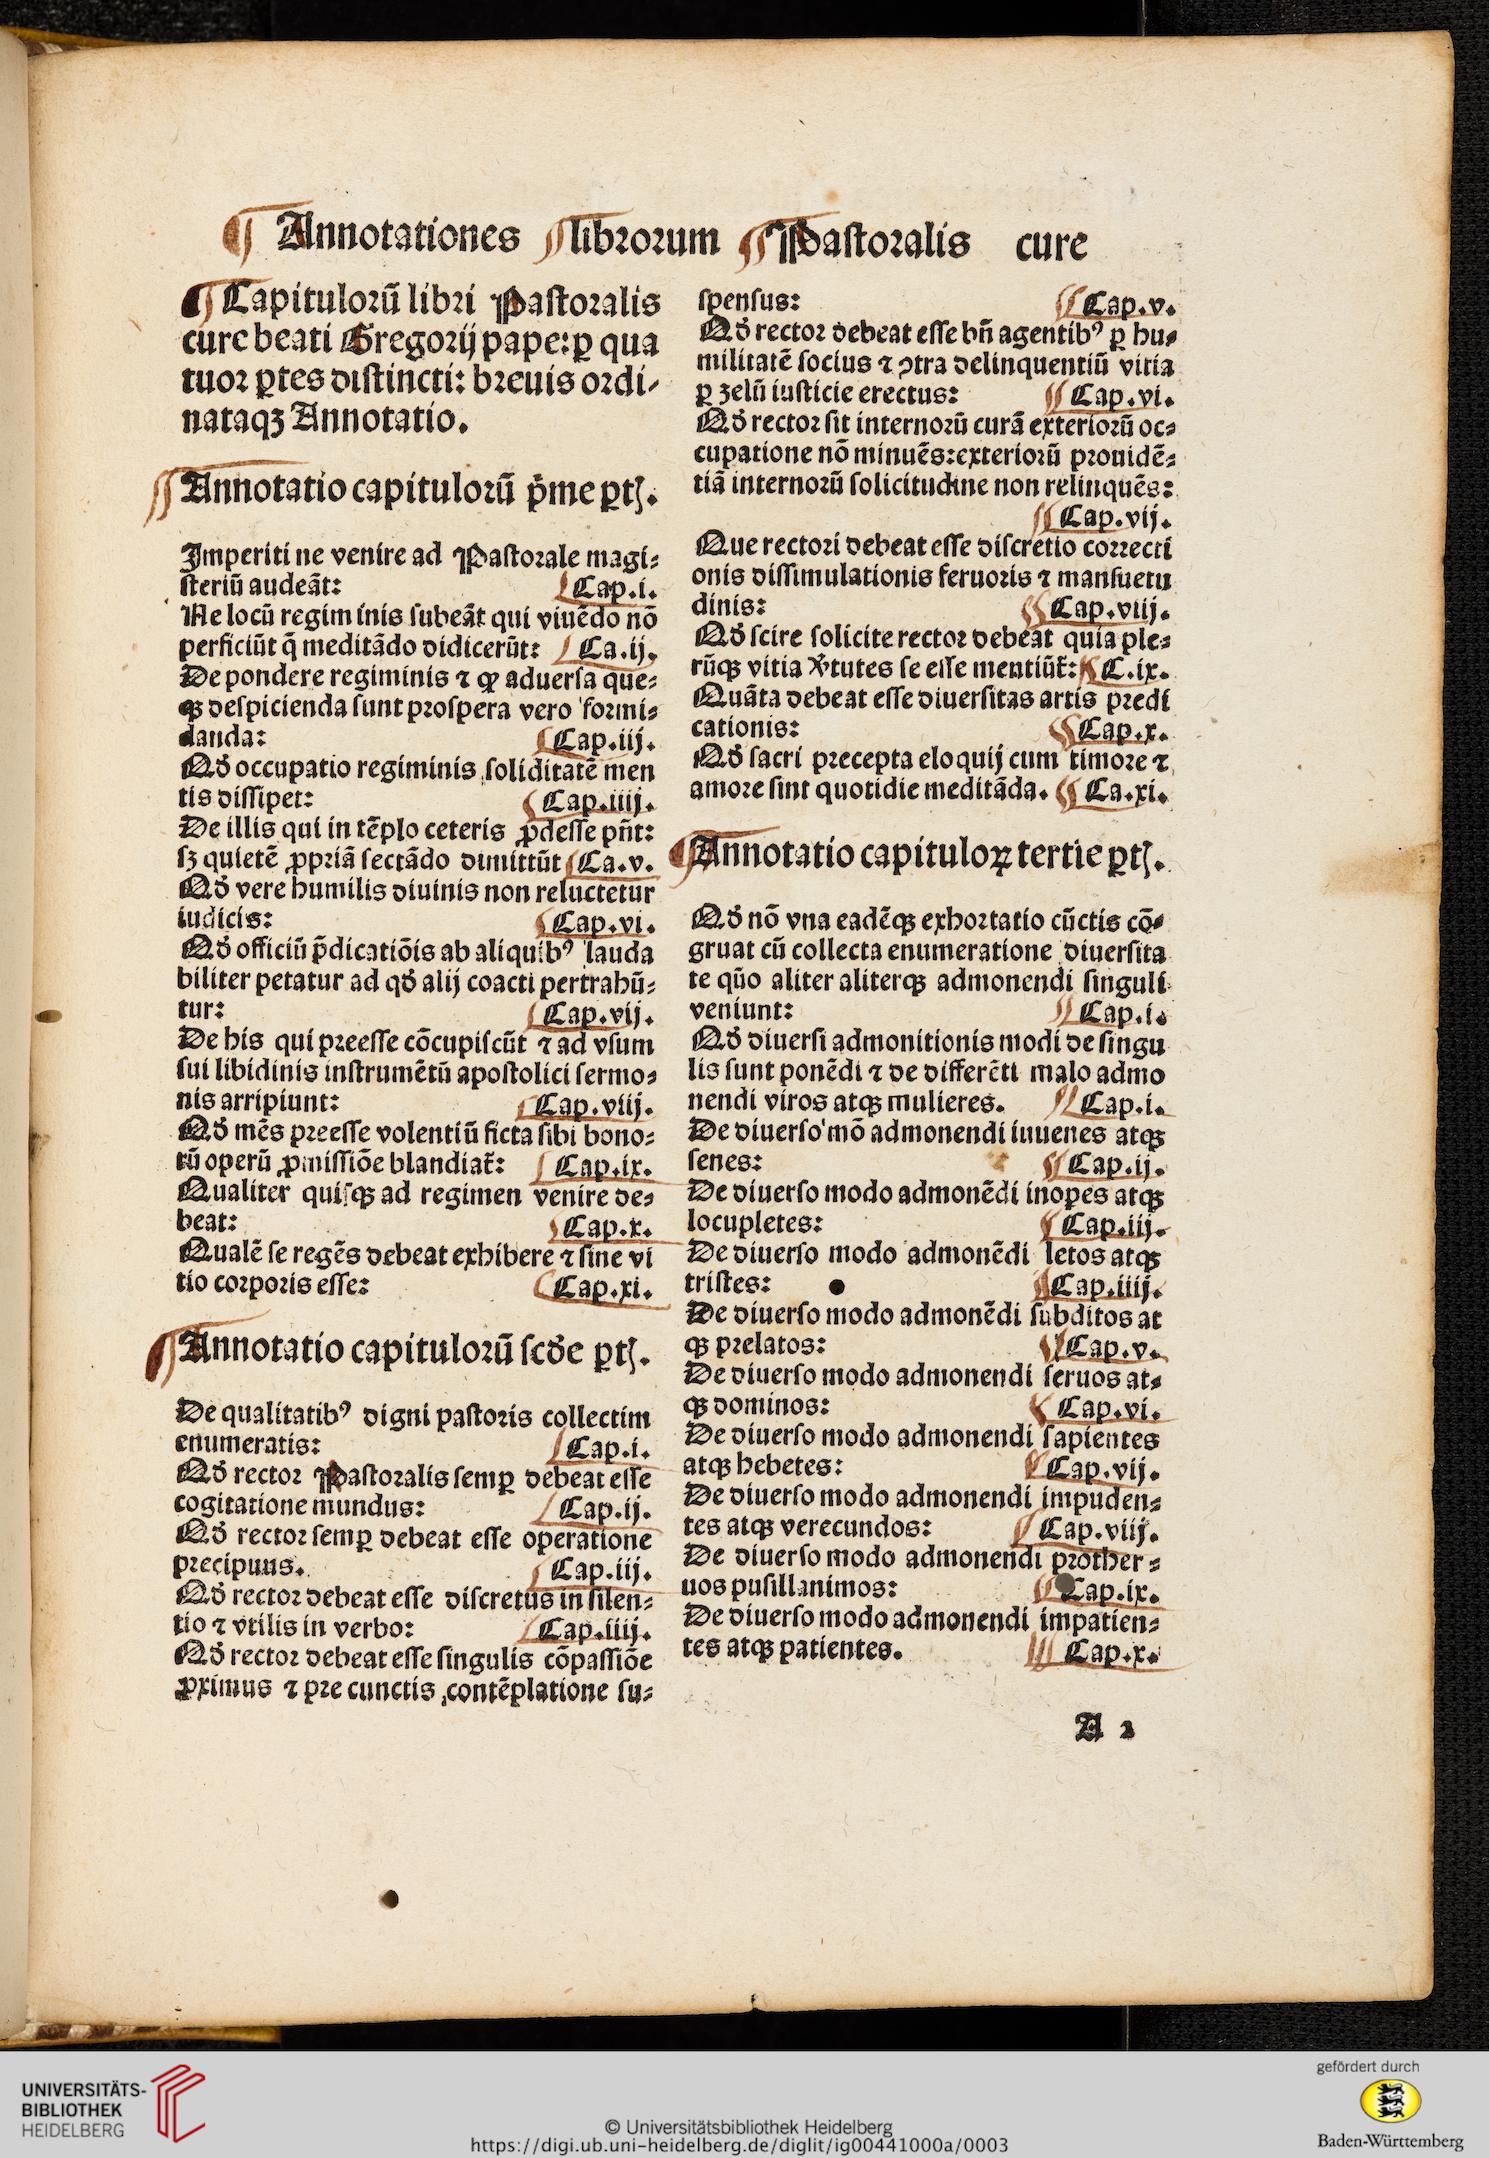 ¶ Annotationes librorum Pastoralis cure
¶ Capitulorū libri Pastoralis
cure beati Gregorij pape: ꝑ qua
tuor ꝑtes distincti: breuis ordi⸗
nataqꝫ Annotatio.
Annotatio capitulorū p̄me ꝑtꝭ.
Imperiti ne venire ad Pastorale magi⸗
steriū audeāt: Cap.i.
Ne locū regiminis subeāt qui viuēdo nō
perficiūt q̄ meditādo didicerūt: Ca.ij.
De pondere regiminis ⁊ ꝙ aduersa que⸗
qꝫ despicienda sunt prospera vero formi⸗
danda: Cap.iij.
Qd̓ occupatio regiminis soliditatē men
tis dissipet: Cap.iiij.
De illis qui in tēplo ceteris ꝓdesse pn̄t:
sꝫ quietē ꝓpriā sectādo dimittūt Ca.v.
Qd̓ vere humilis diuinis non reluctetur
iudicis: Cap.vi.
Qd̓ officiū p̄dicatiōis ab aliquibꝰ lauda
biliter petatur ad qd̓ alij coacti pertrahū⸗
tur: Cap.vij.
De his qui preesse cōcupiscūt ⁊ ad vsum
sui libidinis instrumētū apostolici sermo⸗
nis arripiunt: Cap.viij.
Qd̓ mēs preesse volentiū ficta sibi bono⸗
rū operū ꝓmissiōe blandiat̄: Cap.ix.
Qualiter quisqꝫ ad regimen venire de⸗
beat: Cap.x.
Qualē se regēs debeat exhibere ⁊ sine vi
tio corporis esse: Cap.xi.
Annotatio capitulorū scd̓e ꝑtꝭ.
De qualitatibꝰ digni pastoris collectim
enumeratis: Cap.i.
Qd̓ rector Pastoralis semꝑ debeat esse
cogitatione mundus: Cap.ij.
Qd̓ rector semꝑ debeat esse operatione
precipuus. Cap.iij.
Qd̓ rector debeat esse discretus in silen⸗
tio ⁊ vtilis in verbo: Cap.iiij.
Qd̓ rector debeat esse singulis cōpassiōe
ꝓximus ⁊ pre cunctis contēplatione su⸗
spensus: Cap.v.
Qd̓ rector debeat esse bn̄ agentibꝰ ꝑ hu⸗
militatē socius ⁊ ꝯtra delinquentiū vitia
ꝑ zelū iusticie erectus: Cap.vi.
Qd̓ rector sit internorū curā exteriorū oc⸗
cupatione nō minuēs: exteriorū prouidē⸗
tiā internorū solicitudine non relinquēs:
Cap.vij.
Que rectori debeat esse discretio correcti
onis dissimulationis feruoris ⁊ mansuetu
dinis: Cap.viij.
Qd̓ scire solicite rector debeat quia ple⸗
rūqꝫ vitia v̓tutes se esse mentiūt̄: C.ix.
Quāta debeat esse diuersitas artis predi
cationis: Cap.x.
Qd̓ sacri precepta eloquij cum timore ⁊
amore sint quotidie meditāda. Ca.xi.
Annotatio capituloꝝ tertie ꝑtꝭ.
Qd̓ nō vna eadēqꝫ exhortatio cūctis cō⸗
gruat cū collecta enumeratione diuersita
te qūo aliter aliterqꝫ admonendi singuli
veniunt: Cap.i.
Qd̓ diuersi admonitionis modi de singu
lis sunt ponēdi ⁊ de differēti malo admo
nendi viros atqꝫ mulieres. Cap.i.
De diuerso mō admonendi iuuenes atqꝫ
senes: Cap.ij.
De diuerso modo admonēdi inopes atqꝫ
locupletes: Cap.iij.
De diuerso modo admonēdi letos atqꝫ
tristes: Cap.iiij.
De diuerso modo admonēdi subditos at
qꝫ prelatos: Cap.v.
De diuerso modo admonendi seruos at⸗
qꝫ dominos: Cap.vi.
De diuerso modo admonendi sapientes
atqꝫ hebetes: Cap.vij.
De diuerso modo admonendi impuden⸗
tes atqꝫ verecundos: Cap.viij.
De diuerso modo admonendi prother⸗
uos pusillanimos: Cap.ix.
De diuerso modo admonendi impatien⸗
tes atqꝫ patientes. Cap.x.
A 2
UNIVERSITÄTS-
BIBLIOTHEK
HEIDELBERG
© Universitätsbibliothek Heidelberg
https://digi.ub.uni-heidelberg.de/diglit/ig00441000a/0003
gefördert durch
Baden-Württemberg